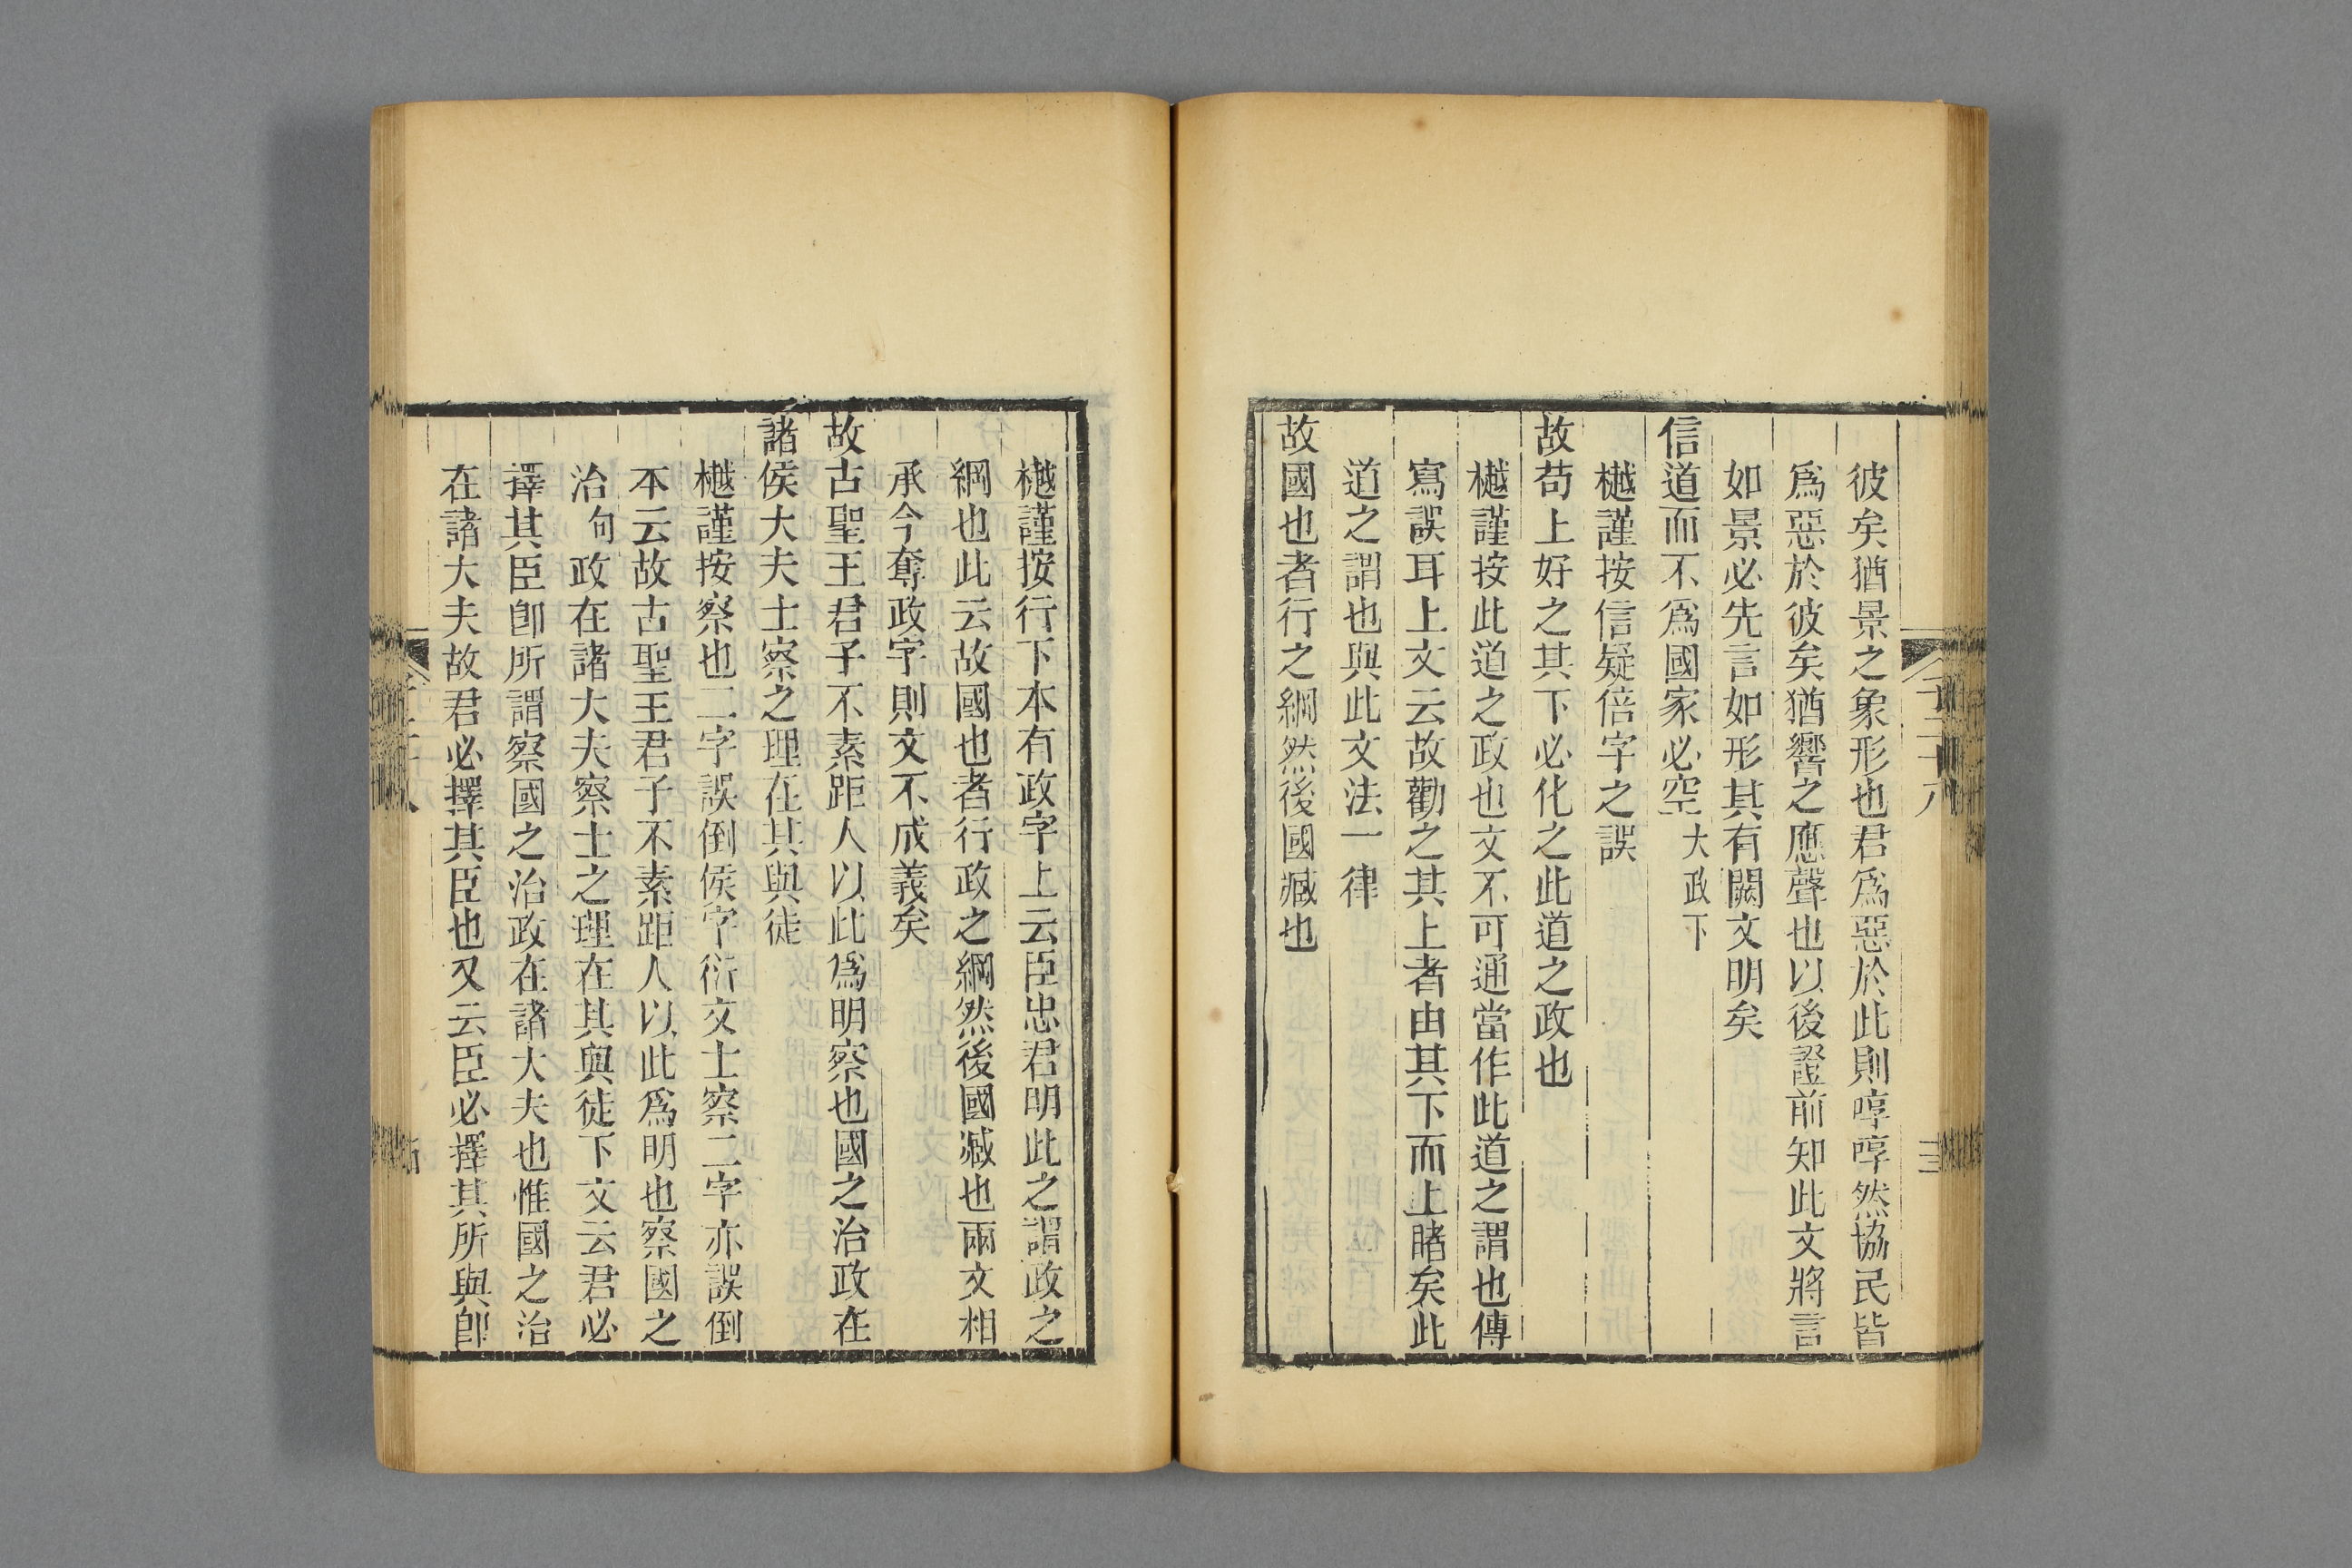 彼矣猶景之象形也君爲惡於此則啍啍然協民皆
爲惡於彼矣猶響之應聲也以後證前知此文將言
如景必先言如形其有闕文明矣
信道而不爲國家必空大政下
樾謹按信疑倍字之誤
故苟上好之其下必化之此道之政也
樾謹按此道之政也文不可通當作此道之謂也傳
寫誤耳上文云故勸之其上者由其下而上睹矣此
道之謂也與此文法一律
故國也者行之綱然後國臧也
樾謹按行下本有政字上云臣忠君明此之謂政之
綱也此云故國也者行政之綱然後國臧也兩文相
承今奪政字則文不成義矣
故古聖王君子不素距人以此爲明察也國之治政在
諸侯大夫士察之理在其與徒
樾謹按察也二字誤倒侯字衍文士察二字亦誤倒
本云故古聖王君子不素距人以此爲明也察國之
治句政在諸大夫察士之理在其與徒下文云君必
擇其臣卽所謂察國之治政在諸大夫也惟國之治
在諸大夫故君必擇其臣也又云臣必擇其所與卽